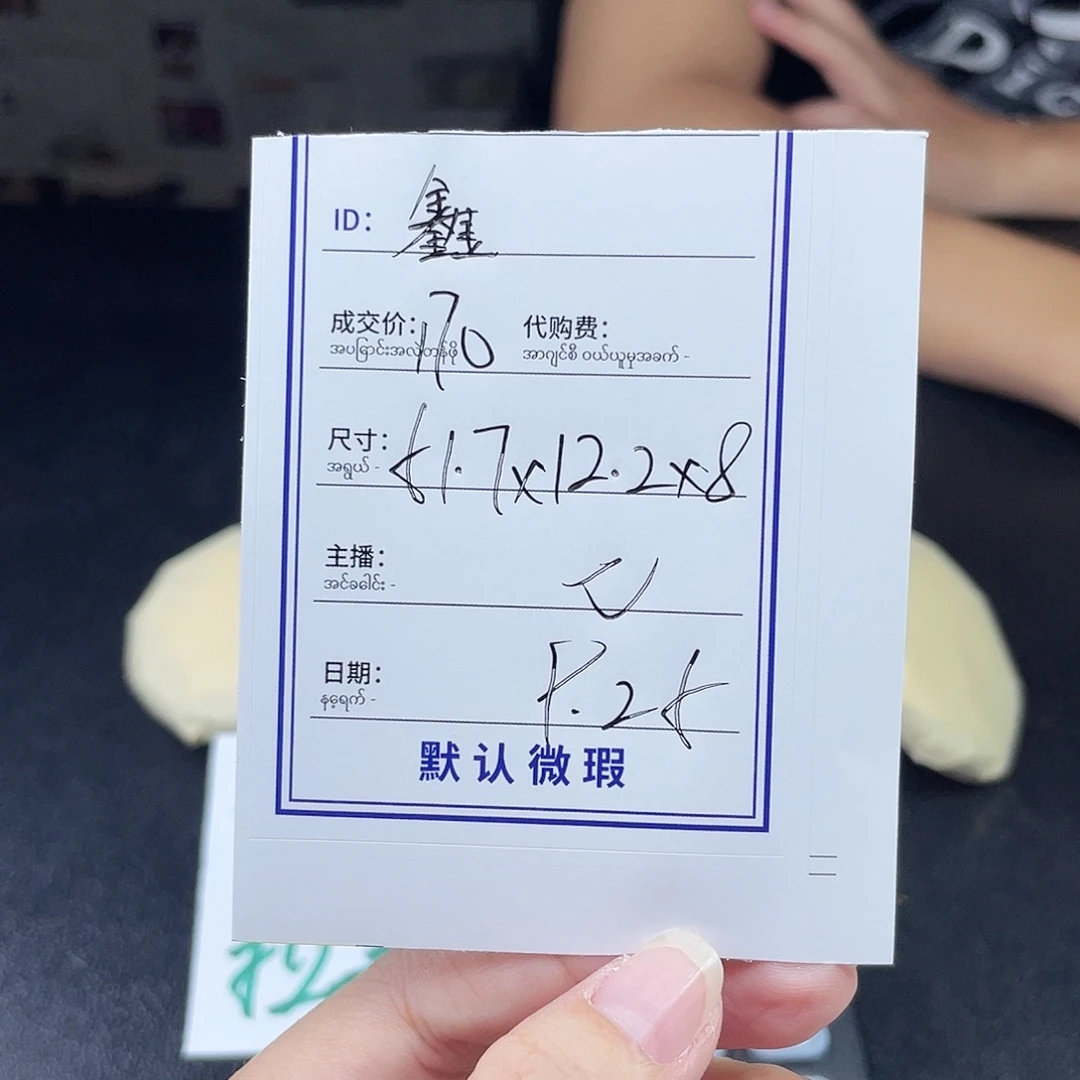 ID: 鑫
成交价: 170 代购费:
အပြောင်းအလဲတန်ဖို အာဂျင်စီ ဝယ်ယူမှုအခက် -
尺寸: 51.7x12.2x8
အရွယ် -
主播:
အင်ခခေါင်း -
日期: 8.25
နေ့ရက် -
默认微瑕